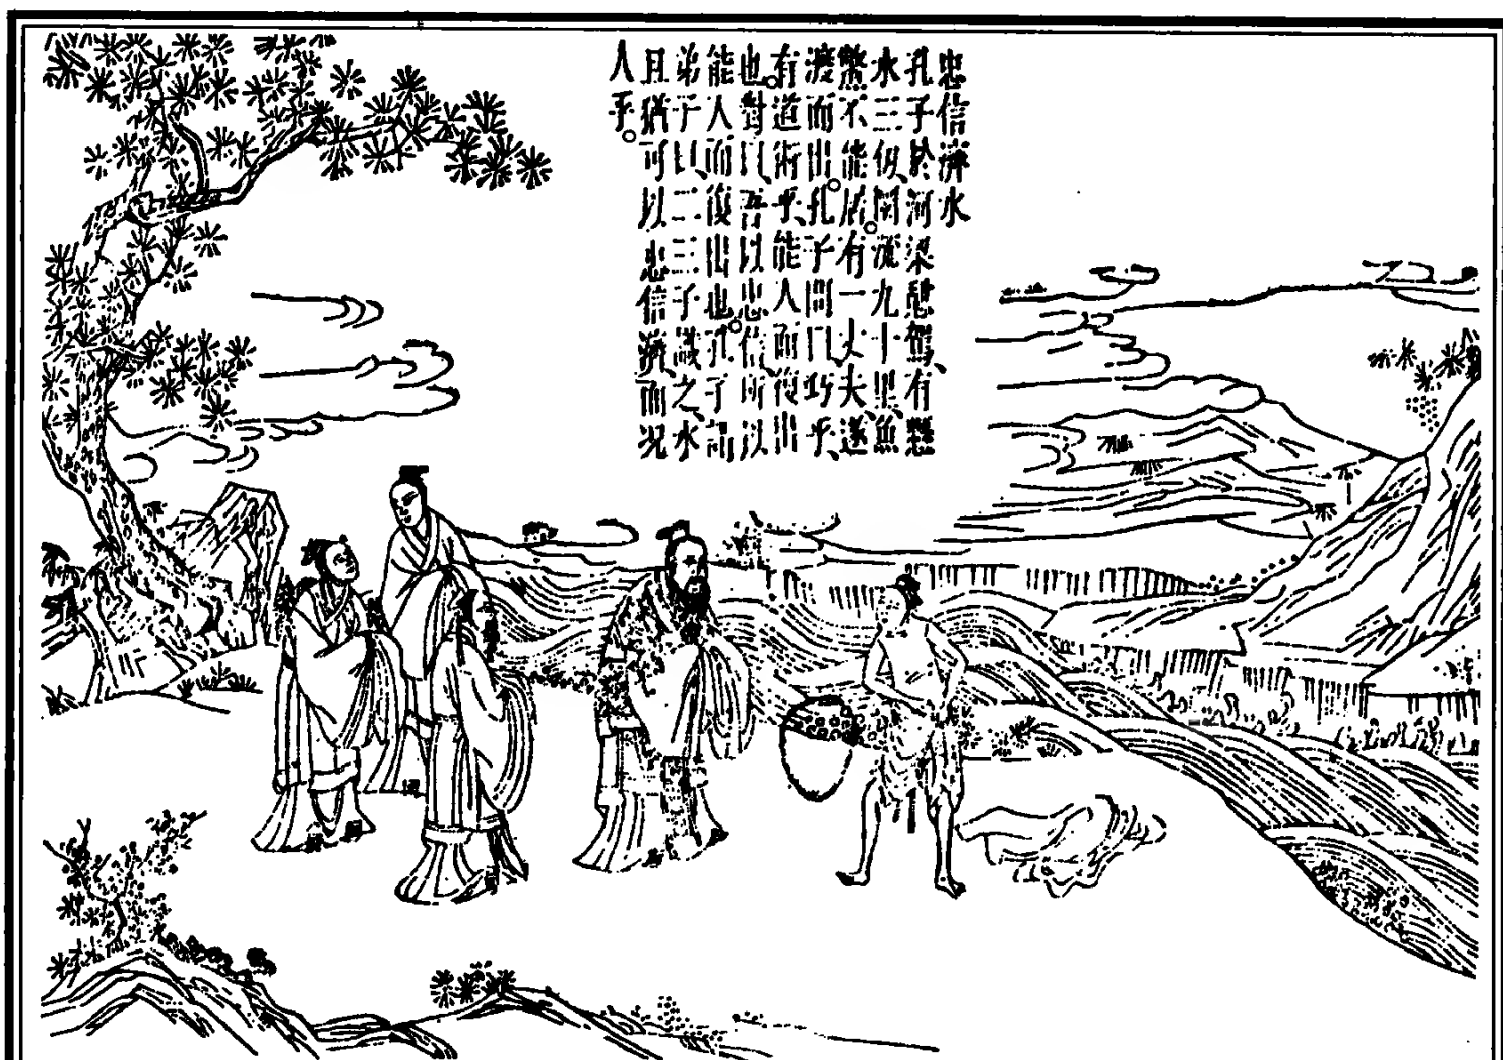 忠信濟水
孔子於河梁憩駕、有懸
水三仭、圜流九十里、魚
鱉不能居。有一丈夫、遂
渡而出。孔子問曰、巧乎、
有道術乎、能入而復出
也。對曰、吾以忠信、所以
能入而復出也。孔子謂
弟子曰、二三子識之、水
且猶可以忠信濟、而况
人乎。